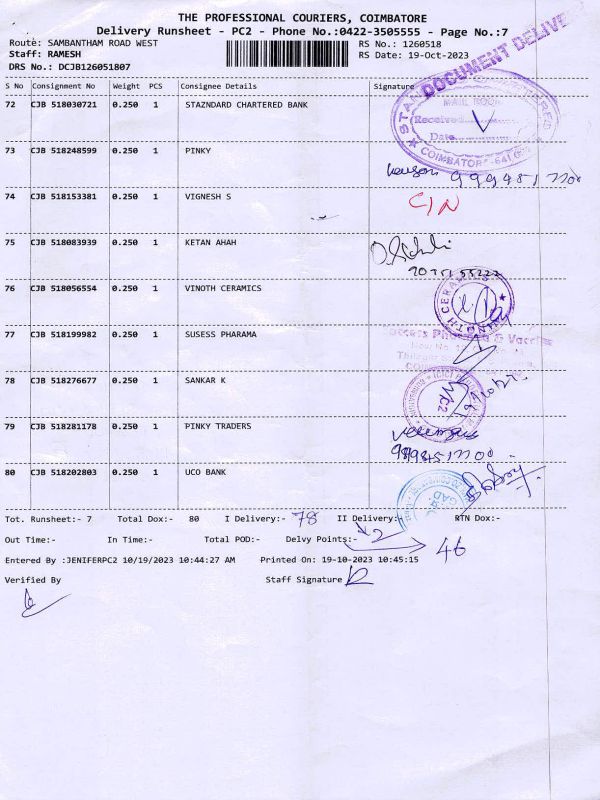 THE PROFESSIONAL COURIERS, COIMBATORE
Delivery Runsheet - PC2 - Phone No.:0422-3505555 - Page No.:7
Route: SAMBANTHAM ROAD WEST RS No.: 1260518
Staff: RAMESH RS Date: 19-Oct-2023
DRS No.: DCJB126051807
DOCUMENT DELIVE
S No Consignment No Weight PCS Consignee Details Signature
72 CJB 518030721 0.250 1 STAZNDARD CHARTERED BANK
MAIL ROOM
Received
Date
COIMBATORE-641
73 CJB 518248599 0.250 1 PINKY
74 CJB 518153381 0.250 1 VIGNESH S
75 CJB 518083939 0.250 1 KETAN AHAH
76 CJB 518056554 0.250 1 VINOTH CERAMICS
VINOTH CERAMICS
77 CJB 518199982 0.250 1 SUSESS PHARAMA
78 CJB 518276677 0.250 1 SANKAR K
79 CJB 518281178 0.250 1 PINKY TRADERS
80 CJB 518202803 0.250 1 UCO BANK
Tot. Runsheet:- 7 Total Dox:- 80 I Delivery:- 78 II Delivery:- RTN Dox:-
Out Time:- In Time:- Total POD:- Delvy Points:- 2 46
Entered By :JENIFERPC2 10/19/2023 10:44:27 AM Printed On: 19-10-2023 10:45:15
Verified By Staff Signature